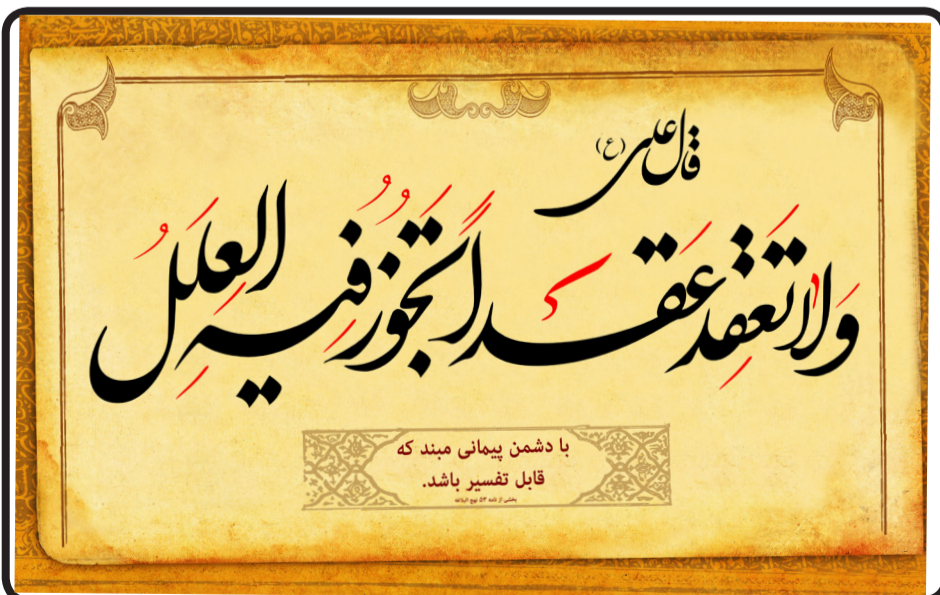 قال علی (ع)
وَلا تَعقِد عَقَداً تَجُوزُ فِیهِ العِلَلُ
با دشمن پیمانی مبند که
قابل تفسیر باشد.
بخشی از نامه ۵۳ نهج البلاغه